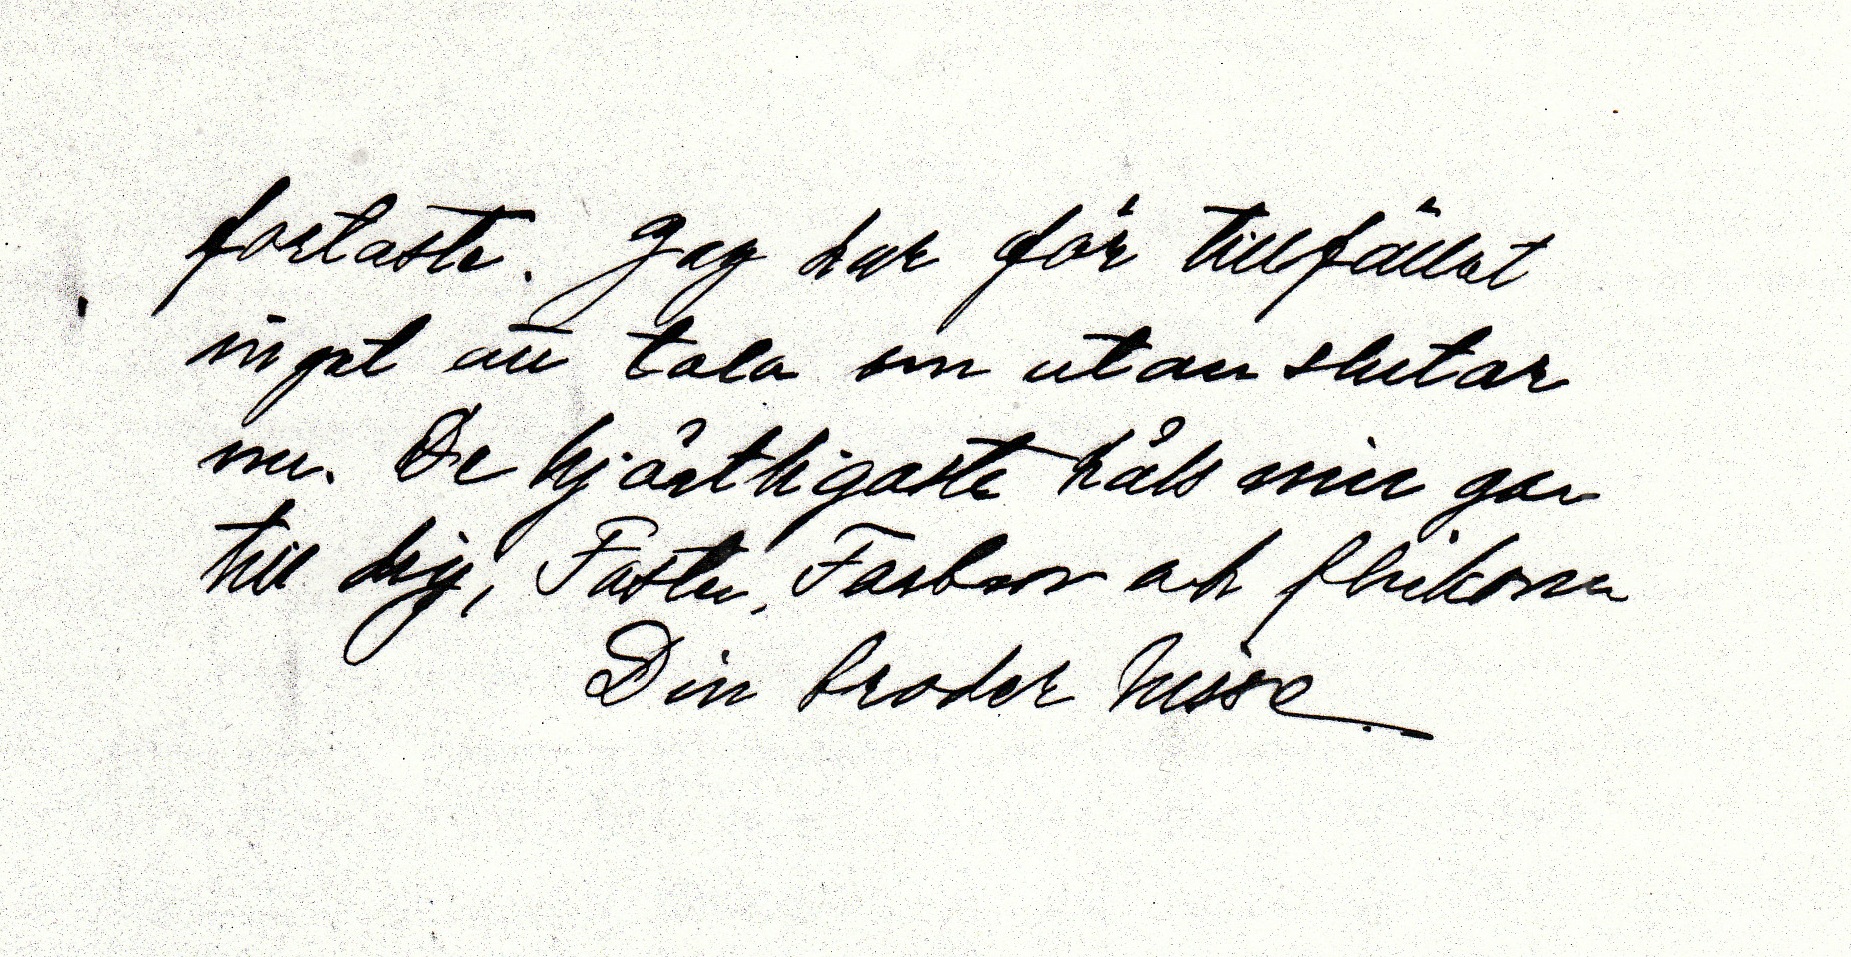 fortaste. Jag har för tillfället
inget att tala om utan slutar
nu. De hjärtligaste hälsningar
till dig, Faster, Farbror och flickorna
Din broder Nisse